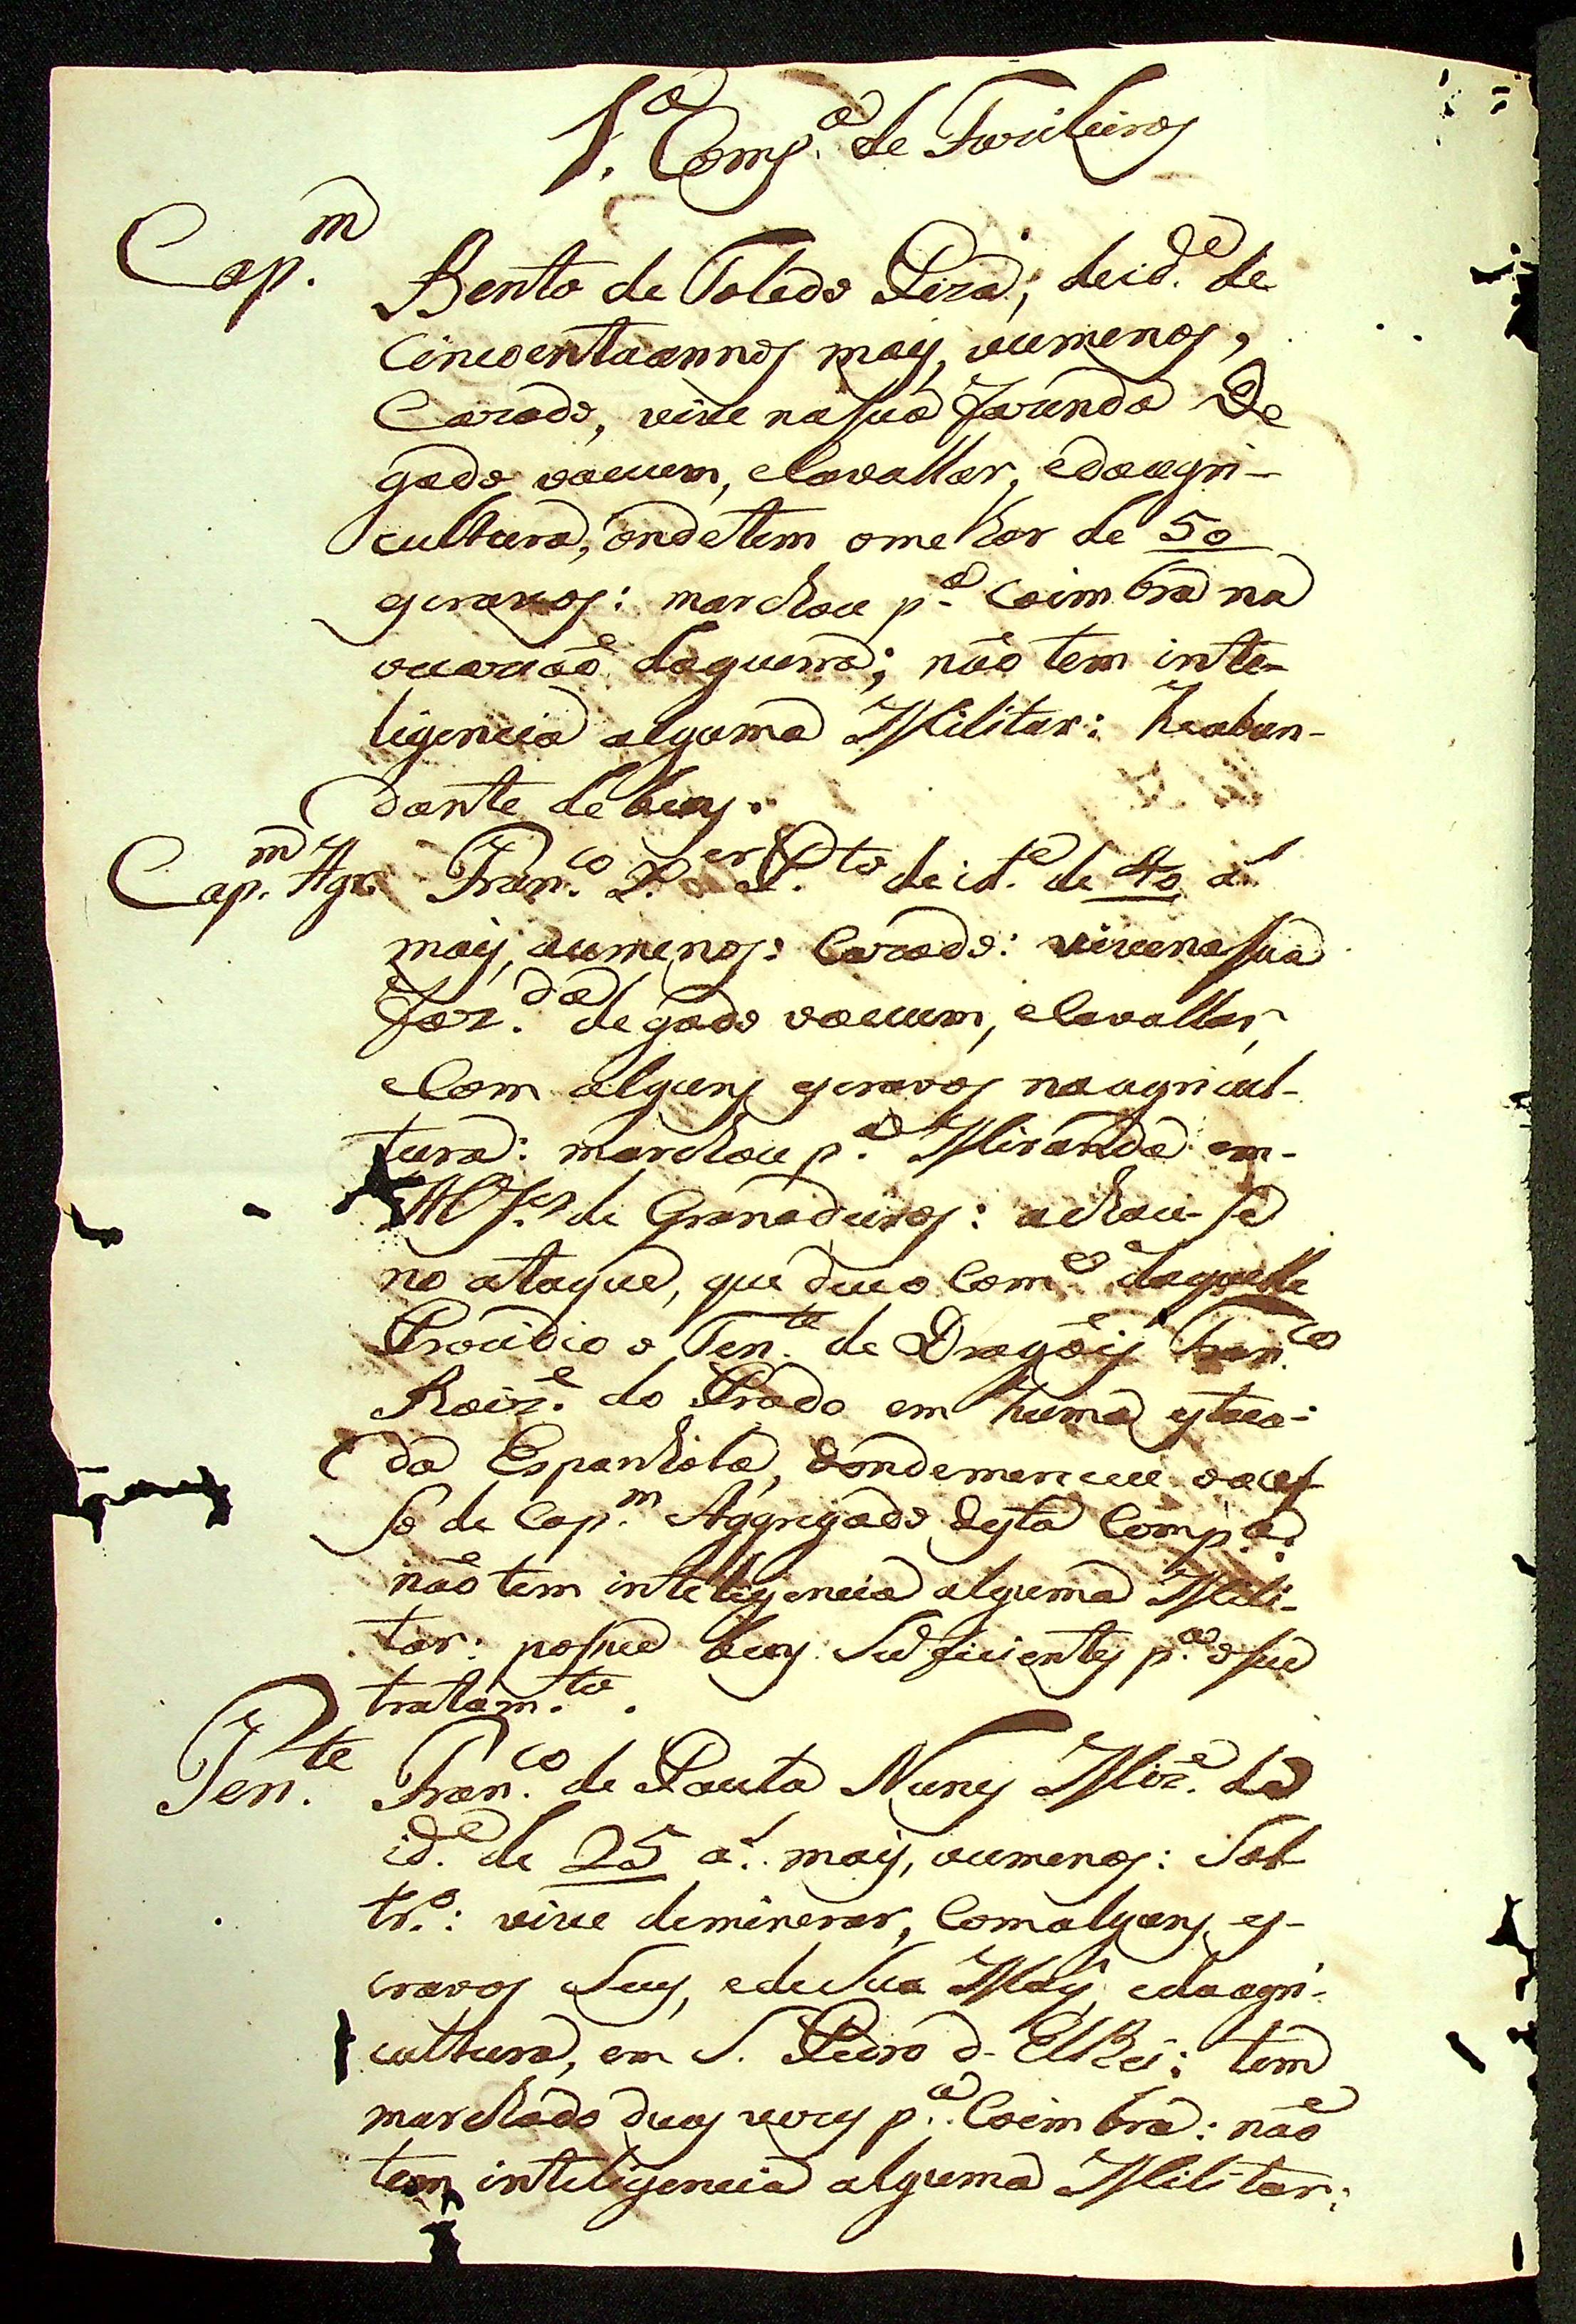 1.ª Comp.ª de Fuzileiros
Cap.m Bento de Toledo Piza; de id.e de
cincoenta annos mais, ou menos,
Cazado, vive na sua Fazenda De
gado vacum, e Cavallar, e da agri-
cultura, onde tem o melhor de 50
escravos: marchou p.ª Coimbra na
ocazião da guerra; não tem inte-
ligencia alguma Militar: he abun-
dante de bens.
Cap.m Agr.e Fran.co X.er P.to de id.e de 40 a.s
mais, ou menos: Cazado: vive na sua
Faz.da de gado vacum, e Cavallar,
e Com alguns escravos na agricul-
tura: marchou p.ª Miranda em
Alf.es de Granadeiros: achou-se
no ataque, que deu o Com.e daquelle
Prezidio o Ten.te de Dragoẽs Fran.co
Roiz.e do Prado em huma estaca-
da Espanhola, donde mereceu o aces-
so de Cap.m Aggregado desta Comp.ª:
não tem inteligencia alguma Mili-
tar: possue bens Sufficientes p.ª o seu
tratam.to.
Ten.te Fran.co de Paula Nunes de
id.e de 25 a.s mais, ou menos: Sol-
tr.o: vive de minerar, Com alguns es-
cravos Seus, e de Sua Maỹ, e da agri-
cultura, em S. Pedro d- ElRei: tem
marchado duas vezes p.ª Coimbra: não
tem inteligencia alguma Militar: